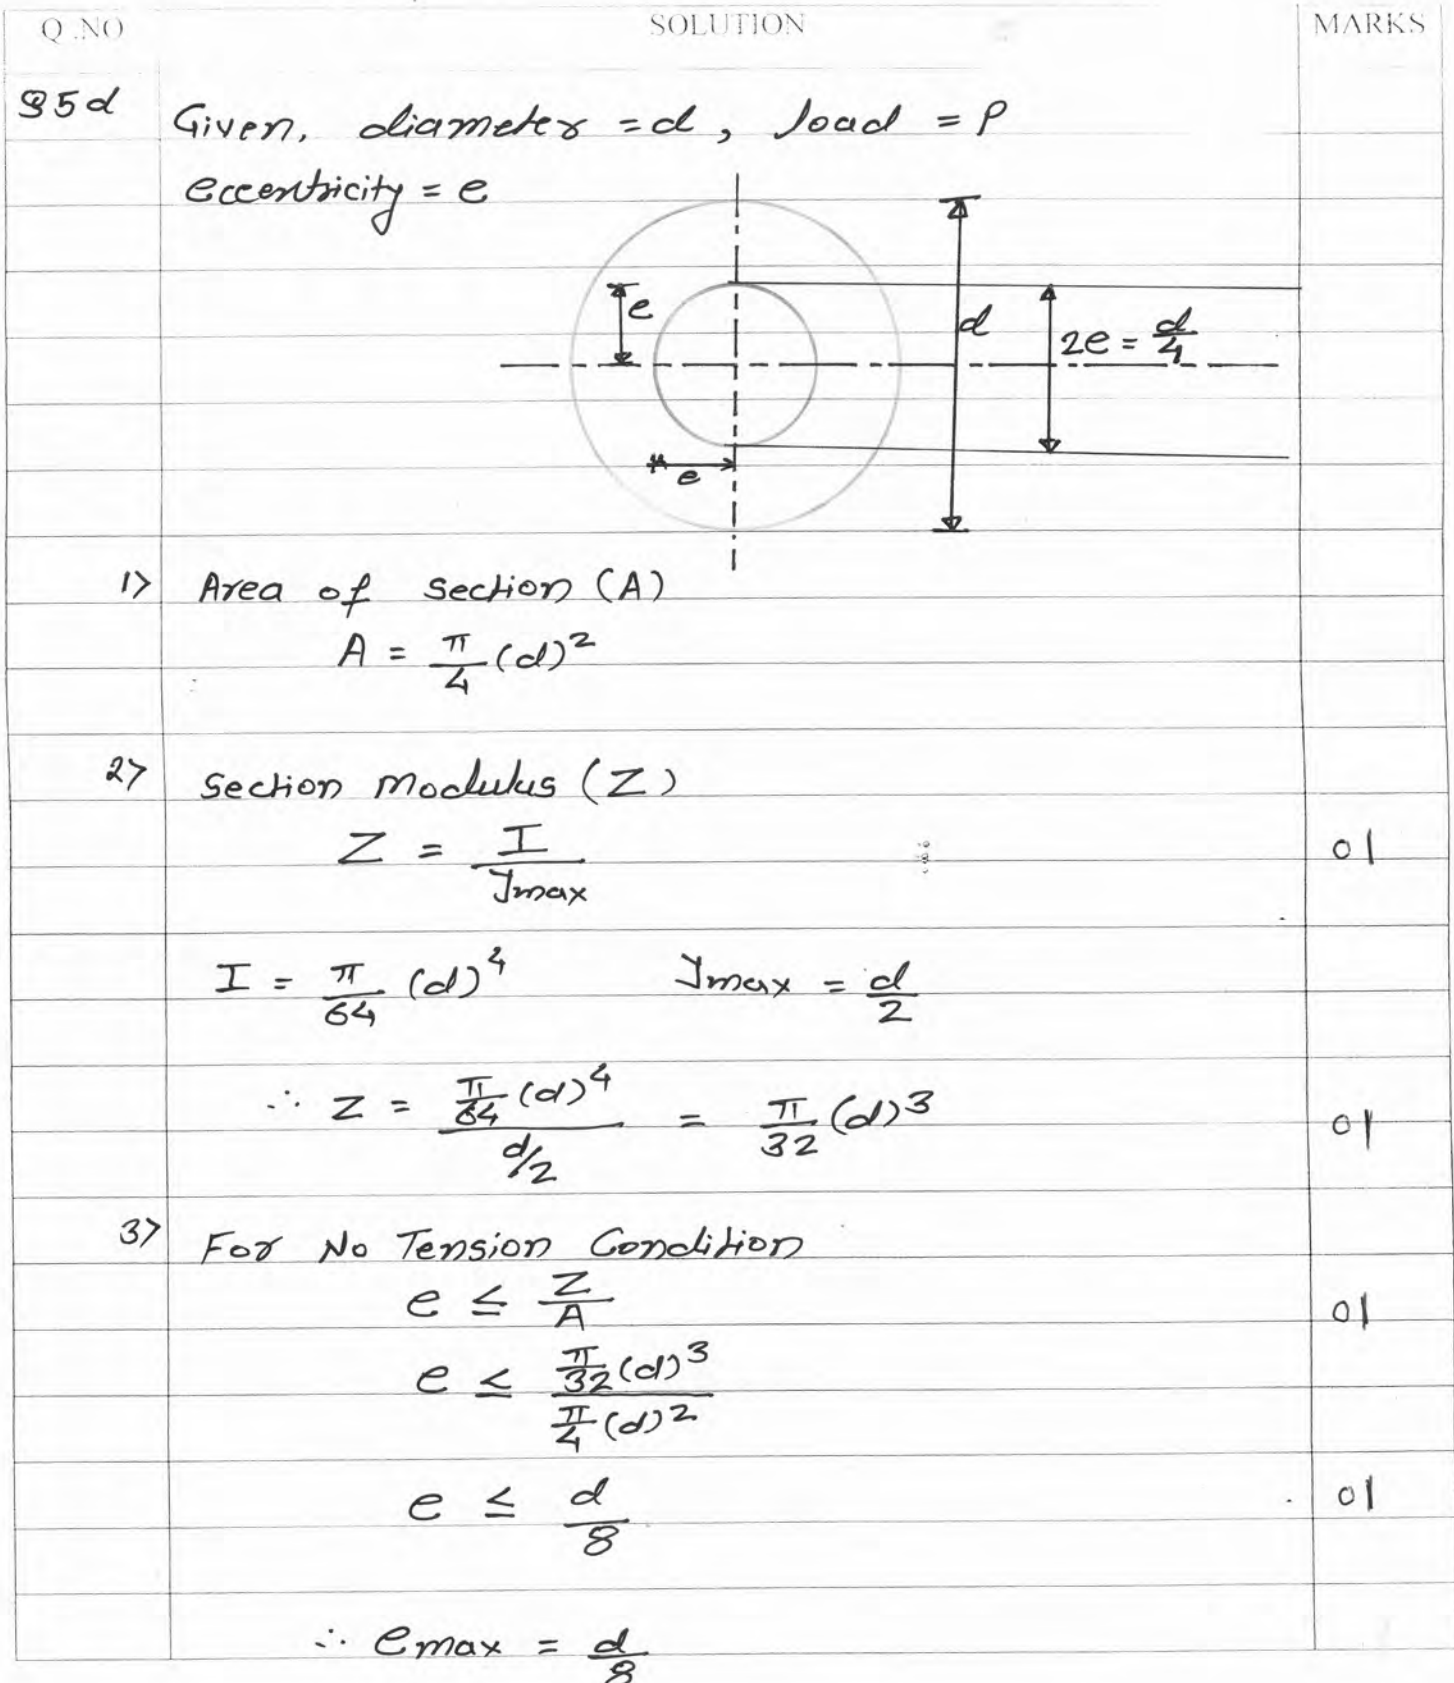 Q.NO SOLUTION MARKS
Q5d Given, diameter = d, load = P
eccentricity = e
e
d
2e = d/4
e
1> Area of section (A)
A = π/4 (d)²
2> Section Modulus (Z)
Z = I/ymax 01
I = π/64 (d)⁴ ymax = d/2
∴ Z = (π/64 (d)⁴)/(d/2) = π/32 (d)³ 01
3> For No Tension Condition
e ≤ Z/A 01
e ≤ (π/32 (d)³)/(π/4 (d)²)
e ≤ d/8 01
∴ emax = d/8